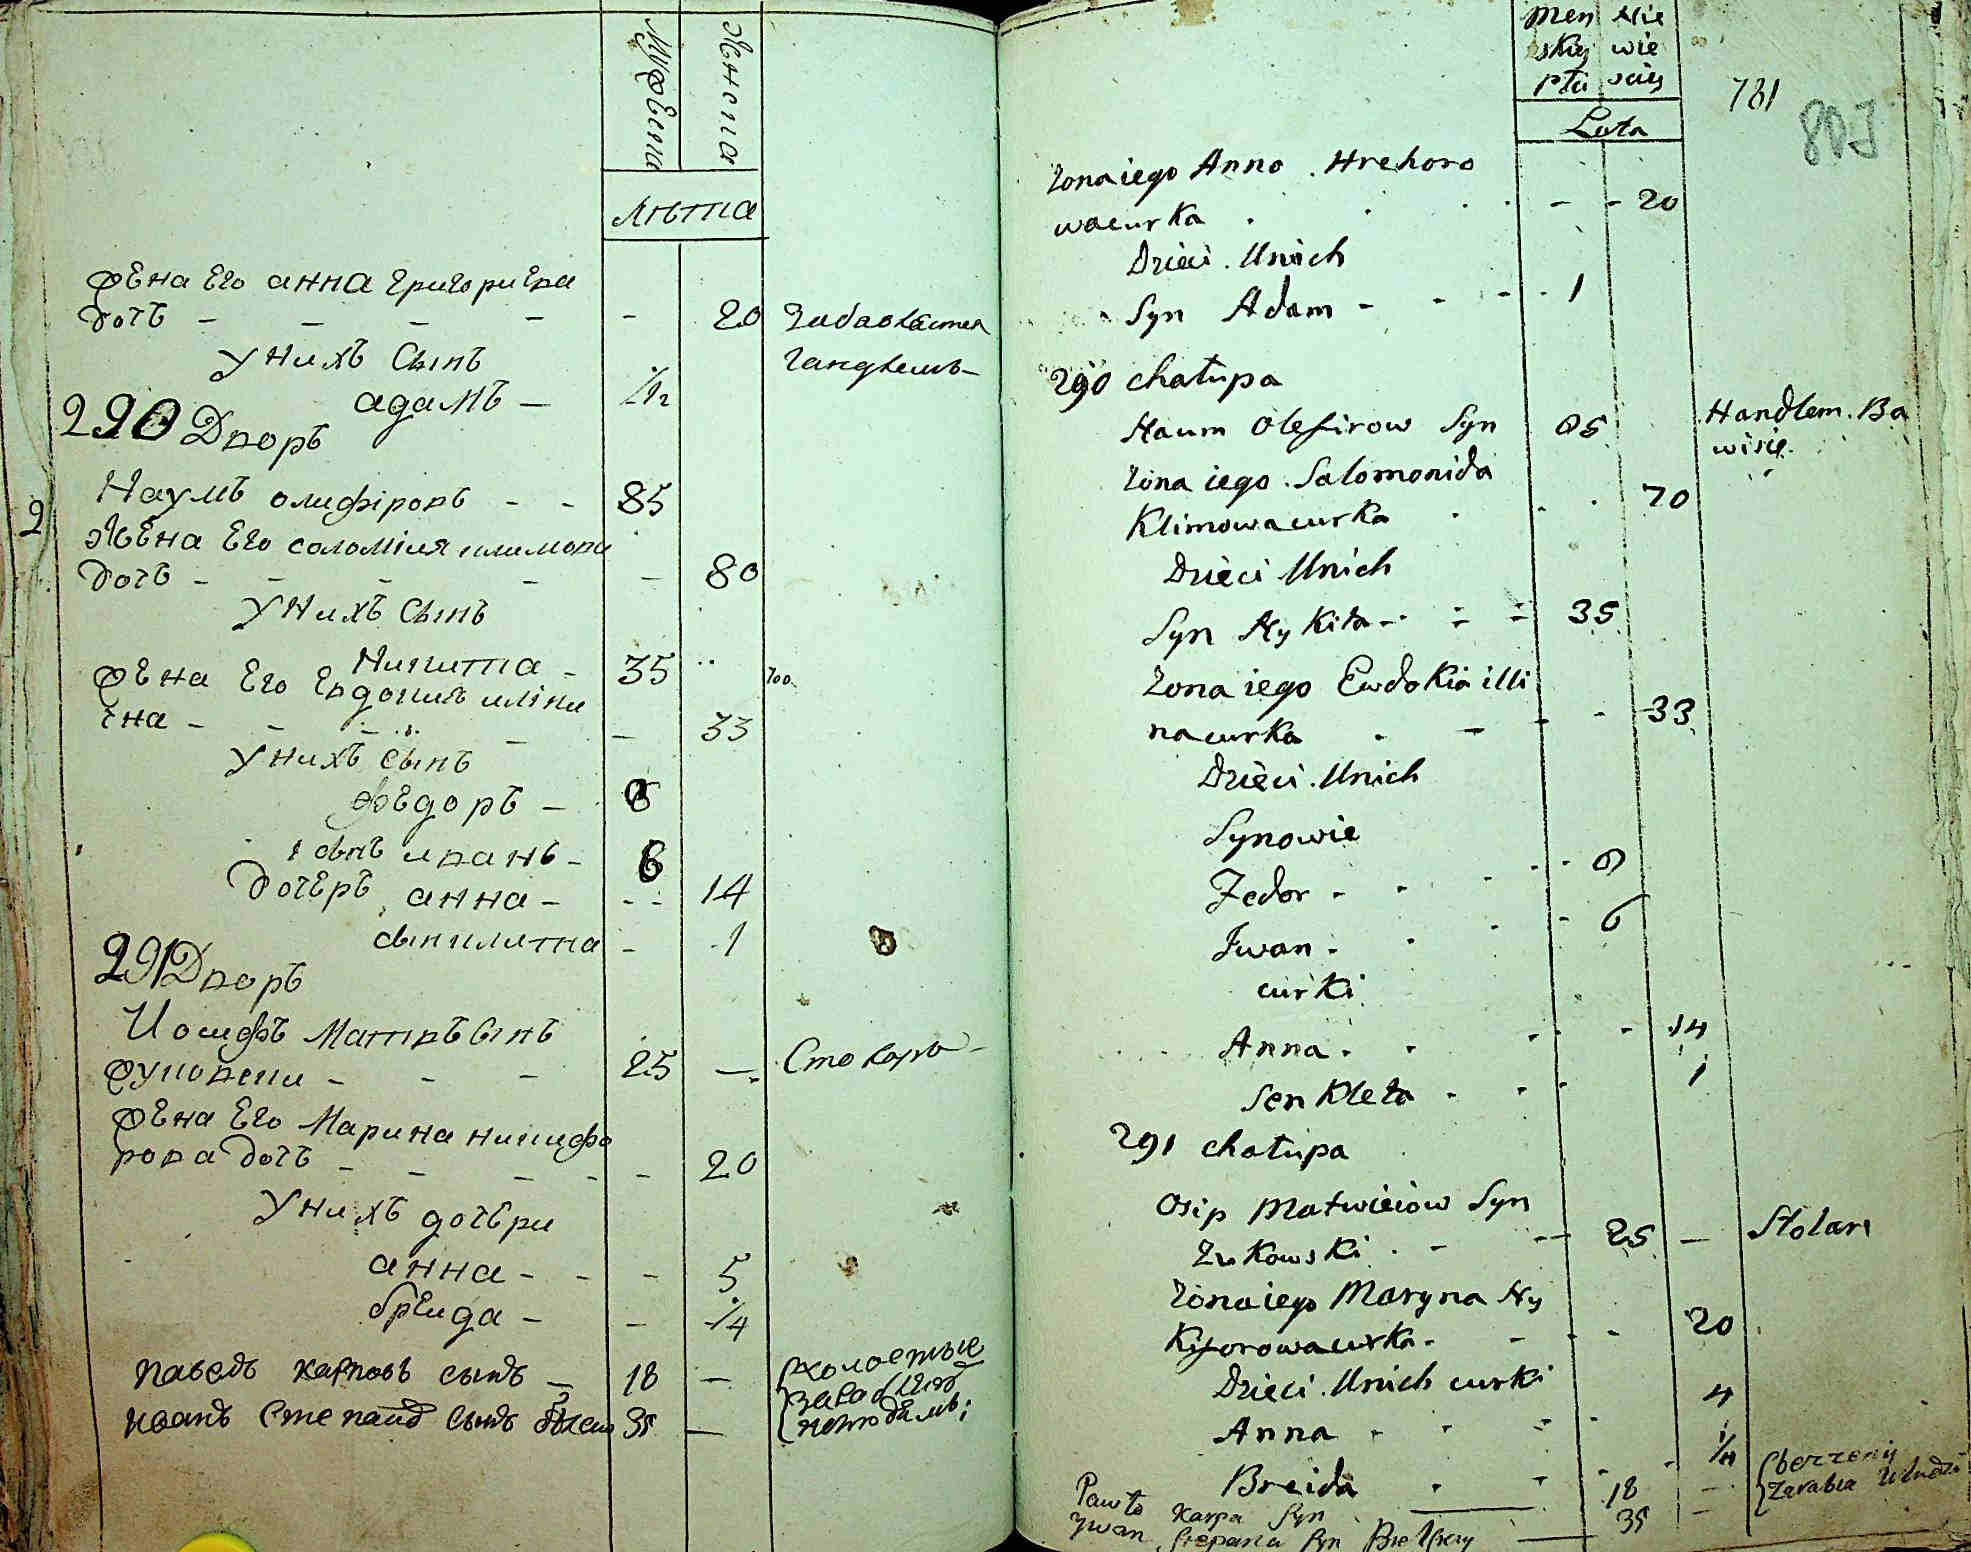 Мужеска
Женска
Лѣта
жена Его анна григориева
дотъ - - - - - 20 Забавляется
гандлемъ
У нихъ Сынъ
адамъ - 1/2
290 Дворъ
Наумъ олифіровъ - - 85
Жена Его соломія климова
дотъ - - - - - 80
У нихъ Сынъ
Никита - 35
жена Его Евдокия иліни
чна - - - - - 33
У нихъ Сынъ
Федоръ - 8
і сынъ иванъ - 6
Дотеръ анна - 14
- 1
291 Дворъ
Иосифъ Матвѣ Сынъ
жуковски - - - 25 - Столяръ
жена Его Марина никифо
рова дотъ - - - - - 20
У нихъ дотери
анна - - - 5
бреида - - 1/4
Павелъ карповъ сынъ - 18 - холостые
иванъ Степанов сынъ 35 -
Męn Nie
skiey wie
płci sciey
Lata
781
801
Zona iego Anna Hrehoro
wa curka - - 20
Dzieci Unich
Syn Adam - - - 1
290 chałupa
Naum Olefirow Syn 85 Handlem Ba
wi się
Zona iego Salomonida
Klimowa curka - 70
Dzieci Unich
Syn Nykita - 35
Zona iego Ewdokia illi
na curka - - - 33
Dzieci Unich
Synowie
Fedor - - - 8
Iwan - - 6
curki
Anna - - - 14
Senkleta - - 1
291 chałupa
Osip Matwieiow Syn
Zukowski - - 25 - Stolarz
Zona iego Maryna Ny
Kiforowa curka - - - 20
Dzieci Unich curki
Anna - - 4
Breida - - 1/4
Pawło Karpa Syn 18 - bezzeny
Iwan Stepana Syn 35 - zarabia Uludzi